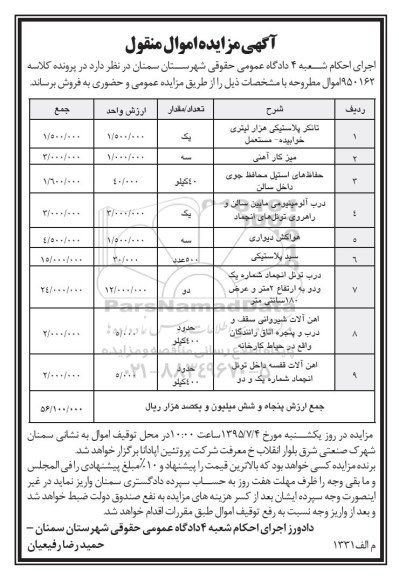 آگهی مزایده اموال منقول
اجرای احکام شعبه ۴ دادگاه عمومی حقوقی شهرستان سمنان در نظر دارد در پرونده کلاسه
۹۵۰۱۶۲اموال مطروحه با مشخصات ذیل را از طریق مزایده عمومی و حضوری به فروش برساند.
ردیف شرح تعداد/مقدار ارزش واحد جمع
۱ تانکر پلاستیکی هزار لیتری خوابیده- مستعمل یک ۱/۵۰۰/۰۰۰ ۱/۵۰۰/۰۰۰
۲ میز کار آهنی سه ۱/۰۰۰/۰۰۰ ۳/۰۰۰/۰۰۰
۳ حفاظ‌های استیل محافظ جوی داخل سالن ۴۰کیلو ۴۰/۰۰۰ ۱/۶۰۰/۰۰۰
۴ درب آلومینیومی مابین سالن و راهروی تونل‌های انجماد یک ۳/۰۰۰/۰۰۰ ۳/۰۰۰/۰۰۰
۵ هواکش دیواری سه ۱/۵۰۰/۰۰۰ ۴/۵۰۰/۰۰۰
۶ سبد پلاستیکی ۵۰۰عدد ۳۰/۰۰۰ ۱۵/۰۰۰/۰۰۰
۷ درب تونل انجماد شماره یک ودو به ارتفاع ۲متر و عرض ۱۸۰سانتی متر دو ۱۲/۰۰۰/۰۰۰ ۲۴/۰۰۰/۰۰۰
۸ اهن آلات شیروانی سقف و درب و پنجره اتاق رانندگان واقع در حیاط کارخانه حدود ۴۰۰کیلو ۵/۰۰۰ ۲/۰۰۰/۰۰۰
۹ اهن آلات قفسه داخل تونل انجماد شماره یک و دو حدود ۴۰۰کیلو ۵/۰۰۰ ۲/۰۰۰/۰۰۰
جمع ارزش پنجاه و شش میلیون و یکصد هزار ریال ۵۶/۱۰۰/۰۰۰
ParsNamadData
پایگاه اطلاع رسانی مناقصه و مزایده
۰۲۱-۸۸۳۴۹۶۷۰-۵
مزایده در روز یکشنبه مورخ ۱۳۹۵/۷/۴ساعت ۱۰:۰۰در محل توقیف اموال به نشانی سمنان
شهرک صنعتی شرق بلوار انقلاب خ معرفت شرکت پروتئین آپادانا برگزار خواهد شد.
برنده مزایده کسی خواهد بود که بالاترین قیمت را پیشنهاد و ۱۰٪مبلغ پیشنهادی را فی المجلس
و ما بقی وجه را ظرف مهلت هفت روز به حساب سپرده دادگستری سمنان واریز نماید در غیر
اینصورت وجه سپرده ایشان بعد از کسر هزینه های مزایده به نفع صندوق دولت ضبط خواهد شد
و بعد از واریز وجه نسبت به رفع توقیف اموال طبق مقررات اقدام خواهد شد.
دادورز اجرای احکام شعبه ۴دادگاه عمومی حقوقی شهرستان سمنان –
حمیدرضا رفیعیان
م الف۱۳۳۱